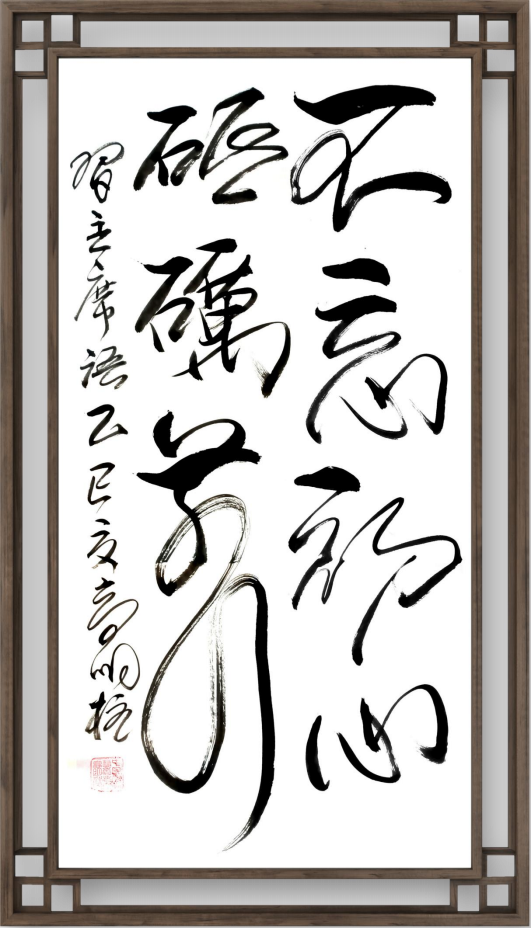 不忘初心
砥礪前行
習主席語乙巳夏高明